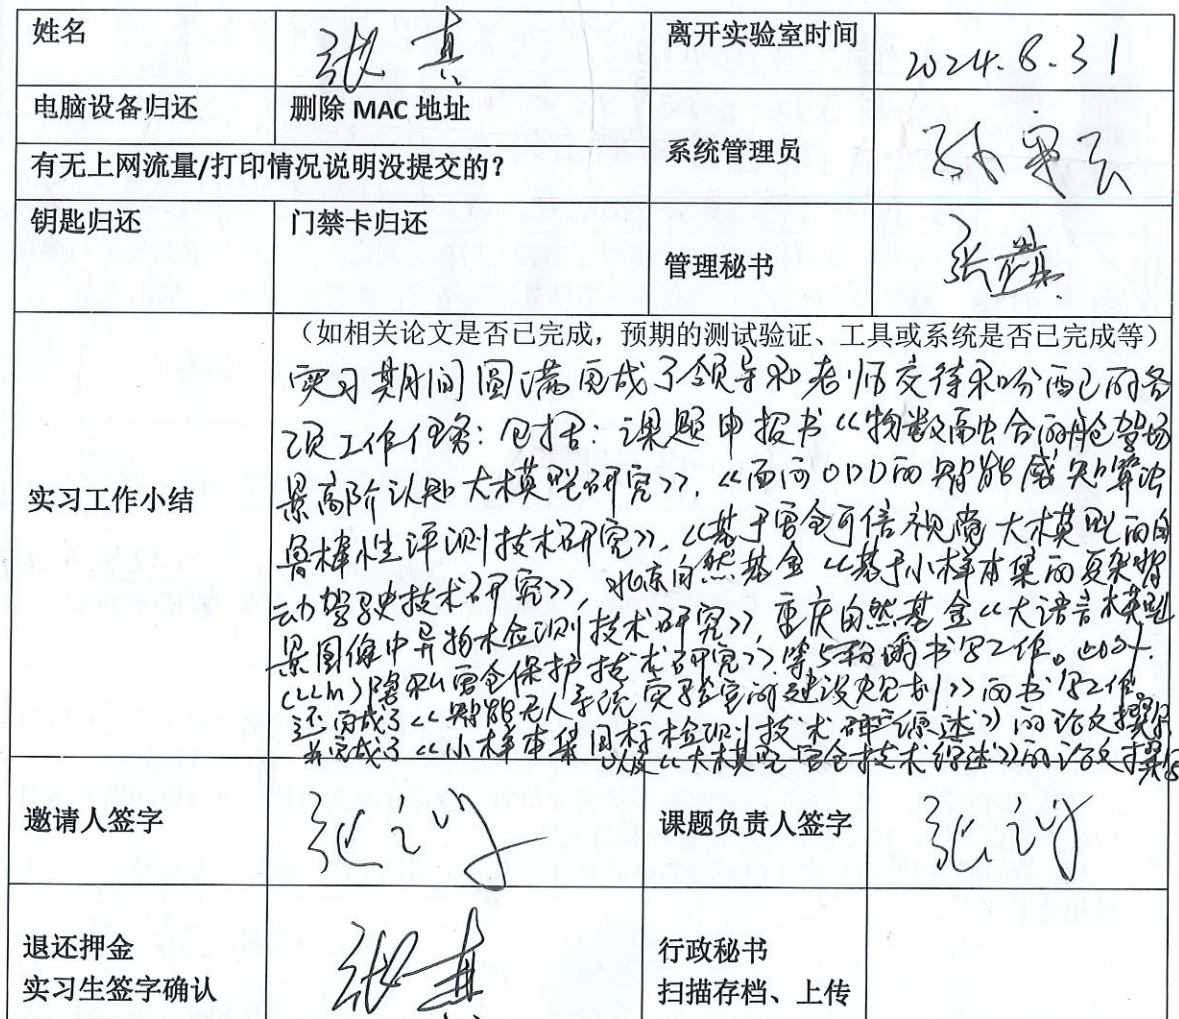 姓名 张真 离开实验室时间 2024.8.31
电脑设备归还 删除 MAC 地址 系统管理员
有无上网流量/打印情况说明没提交的?
钥匙归还 门禁卡归还 管理秘书
(如相关论文是否已完成,预期的测试验证、工具或系统是否已完成等)
实习工作小结
实习期间圆满完成了领导和老师交待和分配已的各
项工作任务:包括:课题申报书《物数融合的舱驾场
景高阶认知大模型研究》,《面向ODD的智能感知算法
鲁棒性评测技术研究》,《基于安全可信视觉大模型的自
动驾驶技术研究》,北京自然基金《基于小样本集的复杂背
景图像中异物检测技术研究》,重庆自然基金《大语言模型
(LLM)隐私安全保护技术研究》等5份 书写工作。此外,
还完成了《智能无人系统实验室的建设规划》的书写工作。
并完成了《小样本集目标检测技术研究综述》的论文撰写
以及《大模型安全技术综述》的论文撰写
邀请人签字 课题负责人签字
退还押金 张真 行政秘书
实习生签字确认 扫描存档、上传